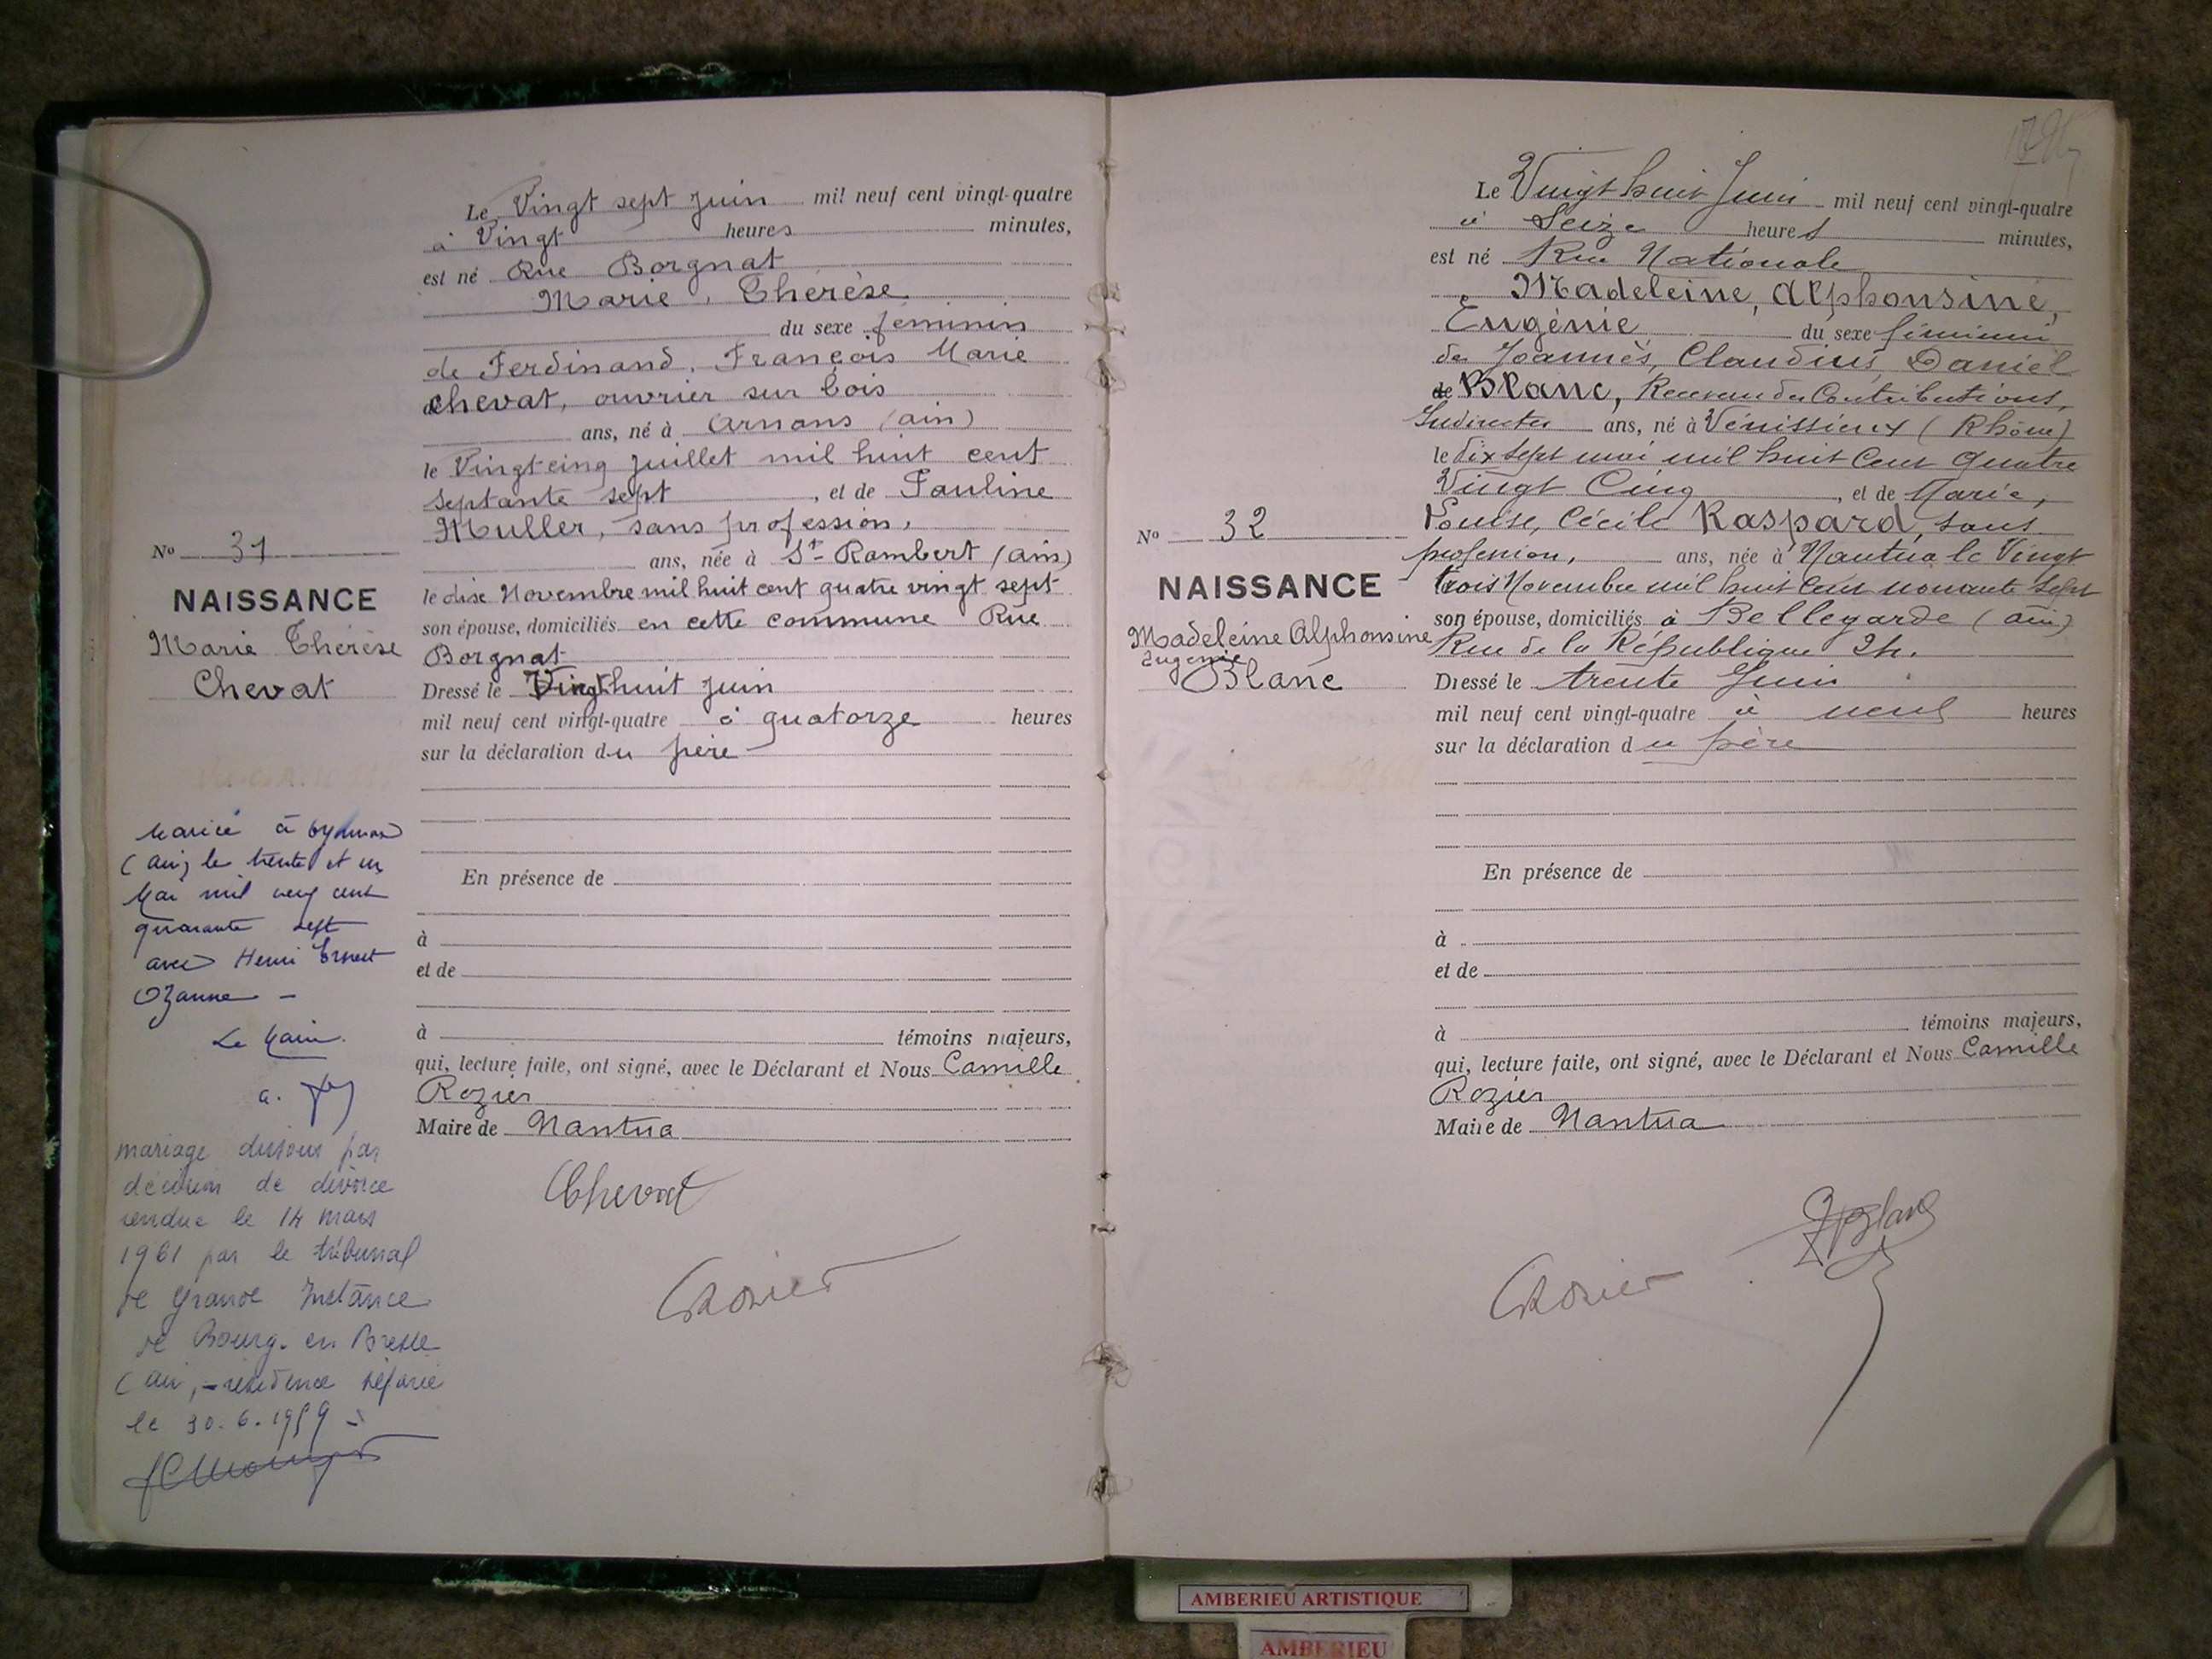 Le Vingt sept juin mil neuf cent vingt-quatre
à Vingt heures minutes,
est né Rue Borgnat
Marie, Thérèse
du sexe féminin
de Ferdinand, François Marie
Chevat, ouvrier sur bois
ans, né à Arnans (ain)
le Vingt cinq juillet mil huit cent
septante sept, et de Pauline
Muller, sans profession,
ans, née à St Rambert (ain)
le dix Novembre mil huit cent quatre vingt sept
son épouse, domiciliés en cette commune Rue
Borgnat
Dressé le Vingt huit juin
mil neuf cent vingt-quatre à quatorze heures
sur la déclaration du père
En présence de
à
et de
à témoins majeurs,
qui, lecture faite, ont signé, avec le Déclarant et Nous Camille
Rozier
Maire de Nantua
Chevat
Rozier
No 31
NAISSANCE
Marie Thérèse
Chevat
Mariée à
(ain) le trente et un
Mai mil neuf cent
quarante sept
avec Henri Ernest
Ozanne -
Le Maire
a.
mariage dissous par
décision de divorce
rendue le 14 mars
1961 par le tribunal
de Grande Instance
de Bourg-en Bresse
(ain) - résidence séparée
le 30.6.1959 -
Le Vingt huit Juin mil neuf cent vingt-quatre
à Seize heures minutes,
est né Rue Nationale
Madeleine, Alphonsine,
Eugénie du sexe féminin
de Joannès, Claudius, Daniel
de Blanc, Receveur des Contributions,
Indirectes ans, né à Vénissieux (Rhône)
le dix sept mai mil huit cent quatre
Vingt Cinq, et de Marie,
Louise, Cécile Raspard, sans
profession, ans, née à Nantua le Vingt
trois Novembre mil huit cent nonante sept
son épouse, domiciliés à Bellegarde (ain)
Rue de la République 24.
Dressé le trente Juin
mil neuf cent vingt-quatre à neuf heures
sur la déclaration du père
En présence de
à
et de
à témoins majeurs,
qui, lecture faite, ont signé, avec le Déclarant et Nous Camille
Rozier
Maire de Nantua
Blanc
Rozier
No 32
NAISSANCE
Madeleine Alphonsine
Eugénie
Blanc
AMBERIEU ARTISTIQUE
AMBERIEU